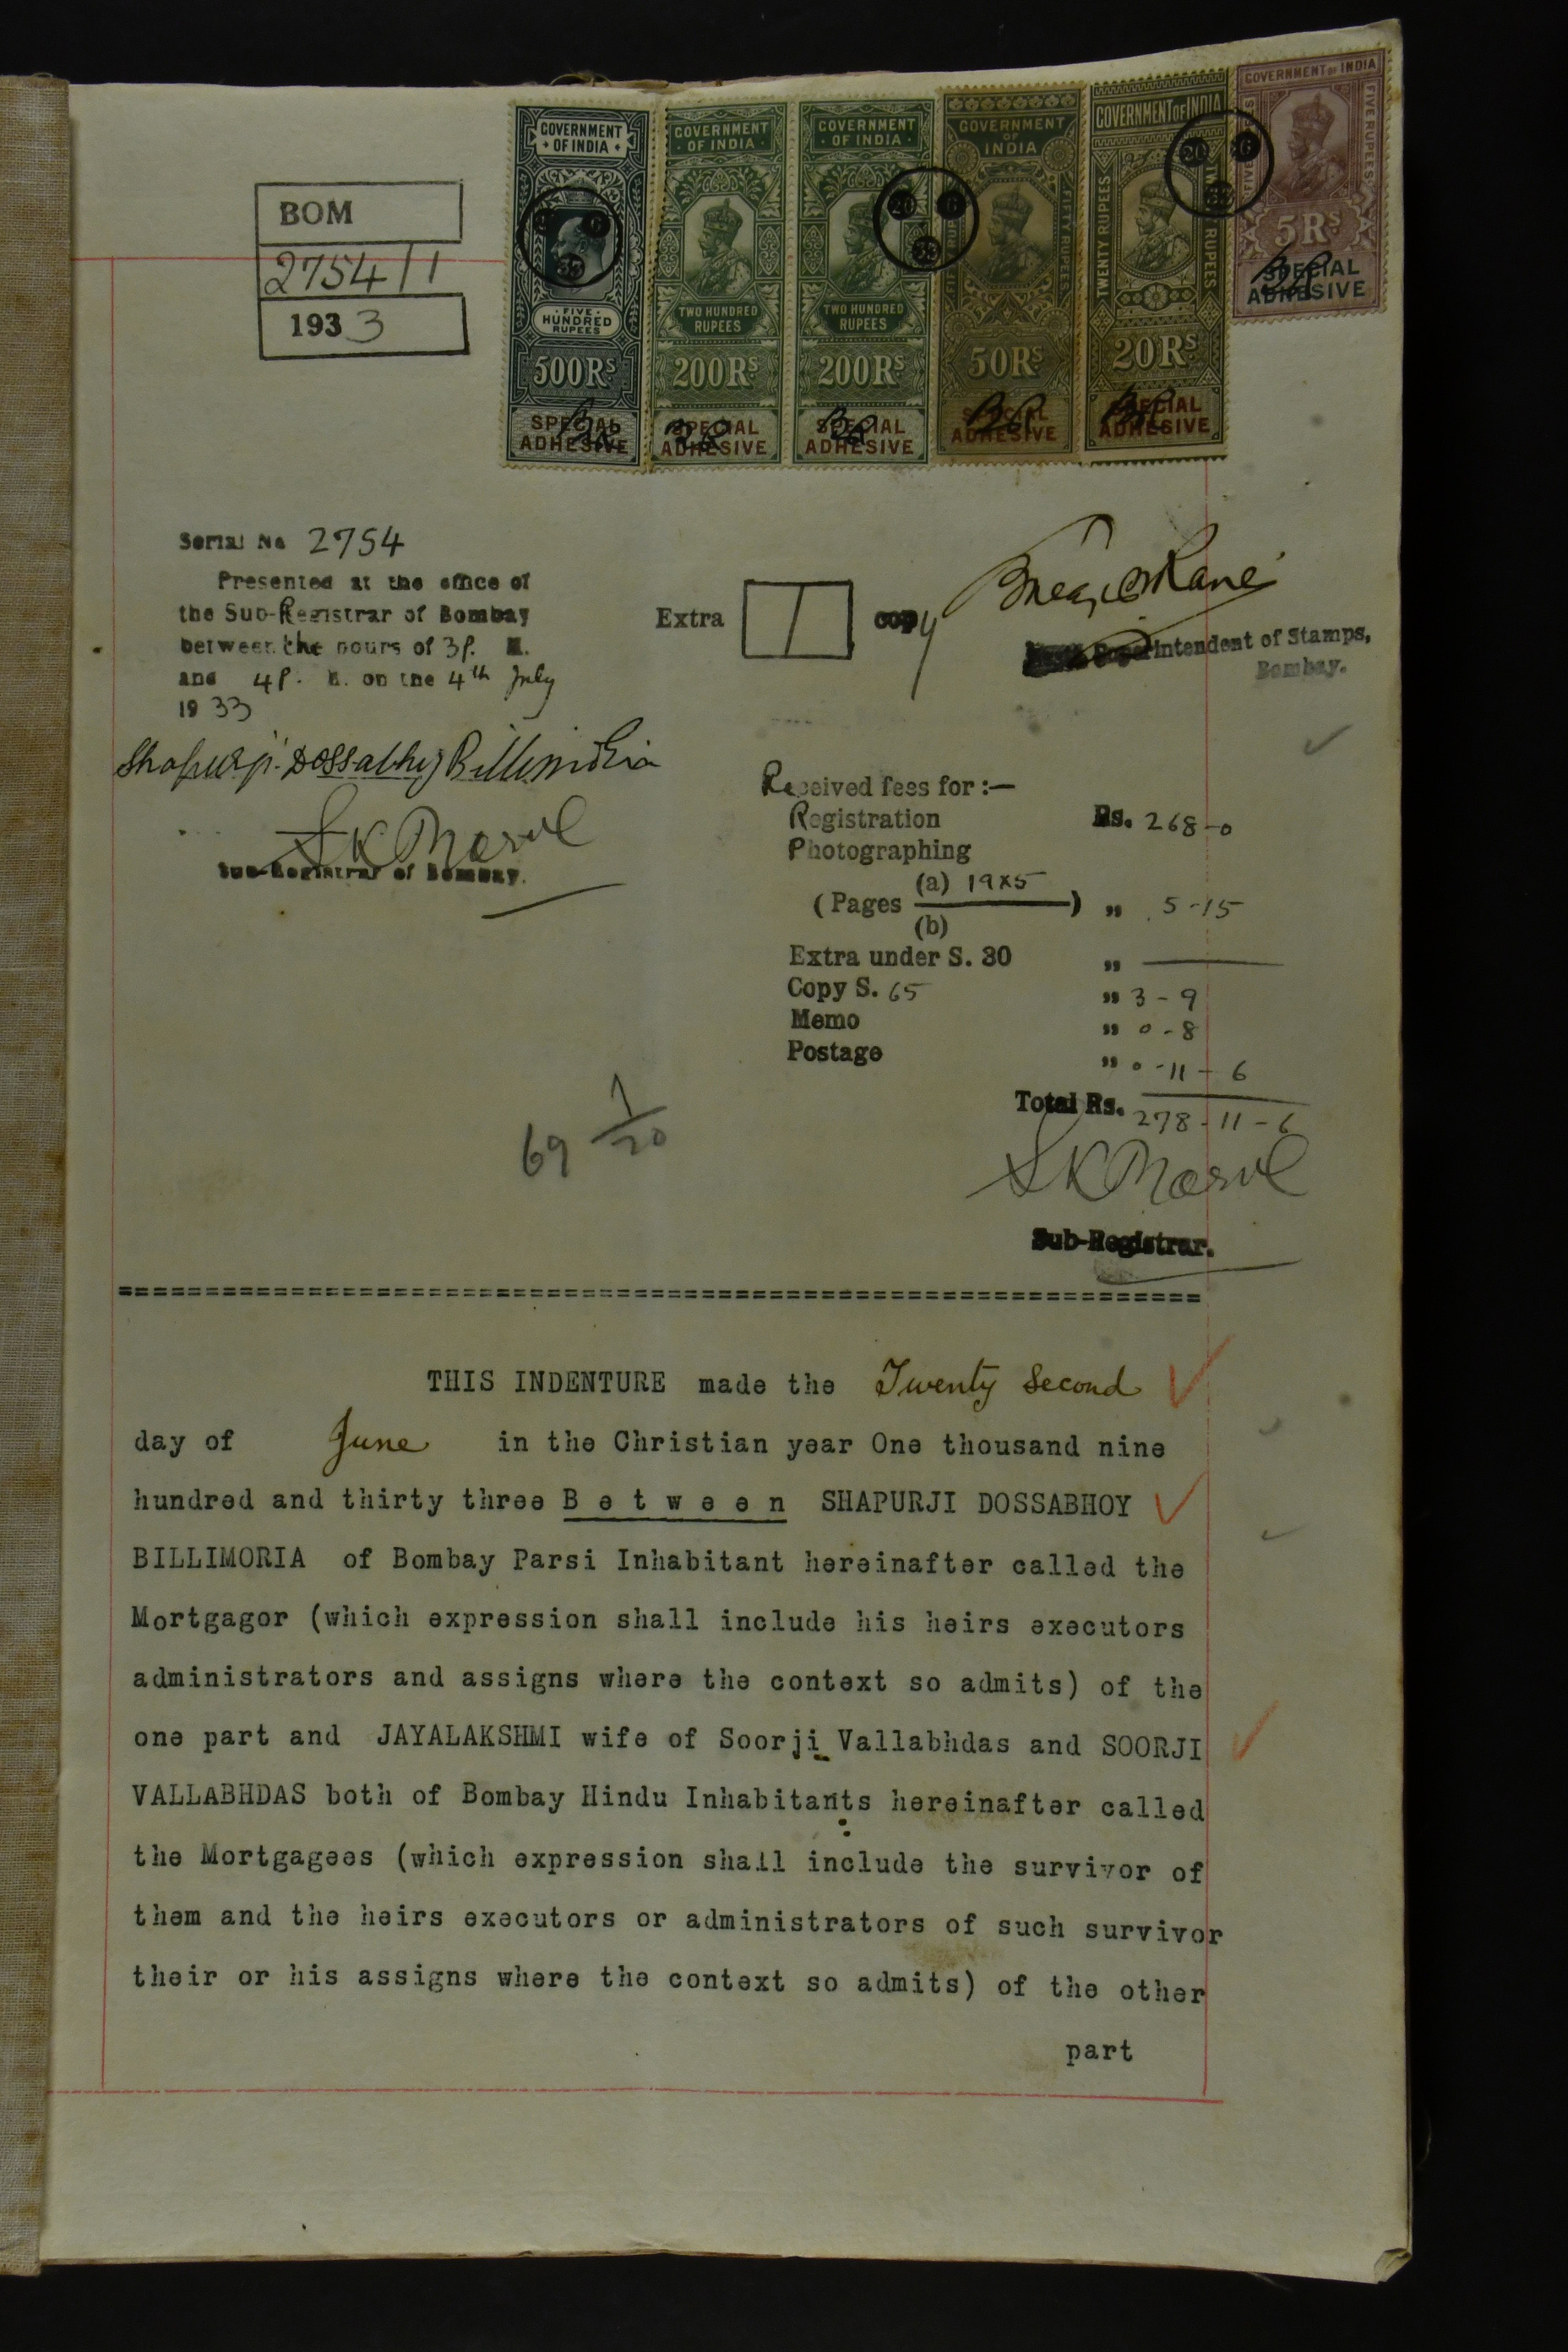 GOVERNMENT
OF INDIA
FIVE
HUNDRED
RUPEES
500Rs
SPECIAL
ADHESIVE
GOVERNMENT
OF INDIA
TWO HUNDRED
RUPEES
200Rs
SPECIAL
ADHESIVE
GOVERNMENT
OF INDIA
TWO HUNDRED
RUPEES
200Rs
SPECIAL
ADHESIVE
GOVERNMENT
OF
INDIA
FIFTY RUPEES
50Rs
SPECIAL
ADHESIVE
GOVERNMENT OF INDIA
TWENTY RUPEES
20Rs
SPECIAL
ADHESIVE
GOVERNMENT OF INDIA
FIVE RUPEES
5Rs
SPECIAL
ADHESIVE
BOM
2754/1
1933
Serial No 2754
Presented at the office of
the Sub-Registrar of Bombay
between the hours of 3 P. M.
and 4 P. M. on the 4th July
1933
Shapurji Dossabhoy Billimoria
Sub-Registrar of Bombay.
Extra 1 copy
Superintendent of Stamps,
Bombay.
Received fees for :—
Registration Rs. 268-0
Photographing
(Pages (a) 19x5 ) „ 5-15
(b)
Extra under S. 30 „ —
Copy S. 65 „ 3-9
Memo „ 0-8
Postage „ 0-11-6
Total Rs. 278-11-6
Sub-Registrar.
69 1/20
THIS INDENTURE made the Twenty Second
day of June in the Christian year One thousand nine
hundred and thirty three Between SHAPURJI DOSSABHOY
BILLIMORIA of Bombay Parsi Inhabitant hereinafter called the
Mortgagor (which expression shall include his heirs executors
administrators and assigns where the context so admits) of the
one part and JAYALAKSHMI wife of Soorji Vallabhdas and SOORJI
VALLABHDAS both of Bombay Hindu Inhabitants hereinafter called
the Mortgagees (which expression shall include the survivor of
them and the heirs executors or administrators of such survivor
their or his assigns where the context so admits) of the other
part